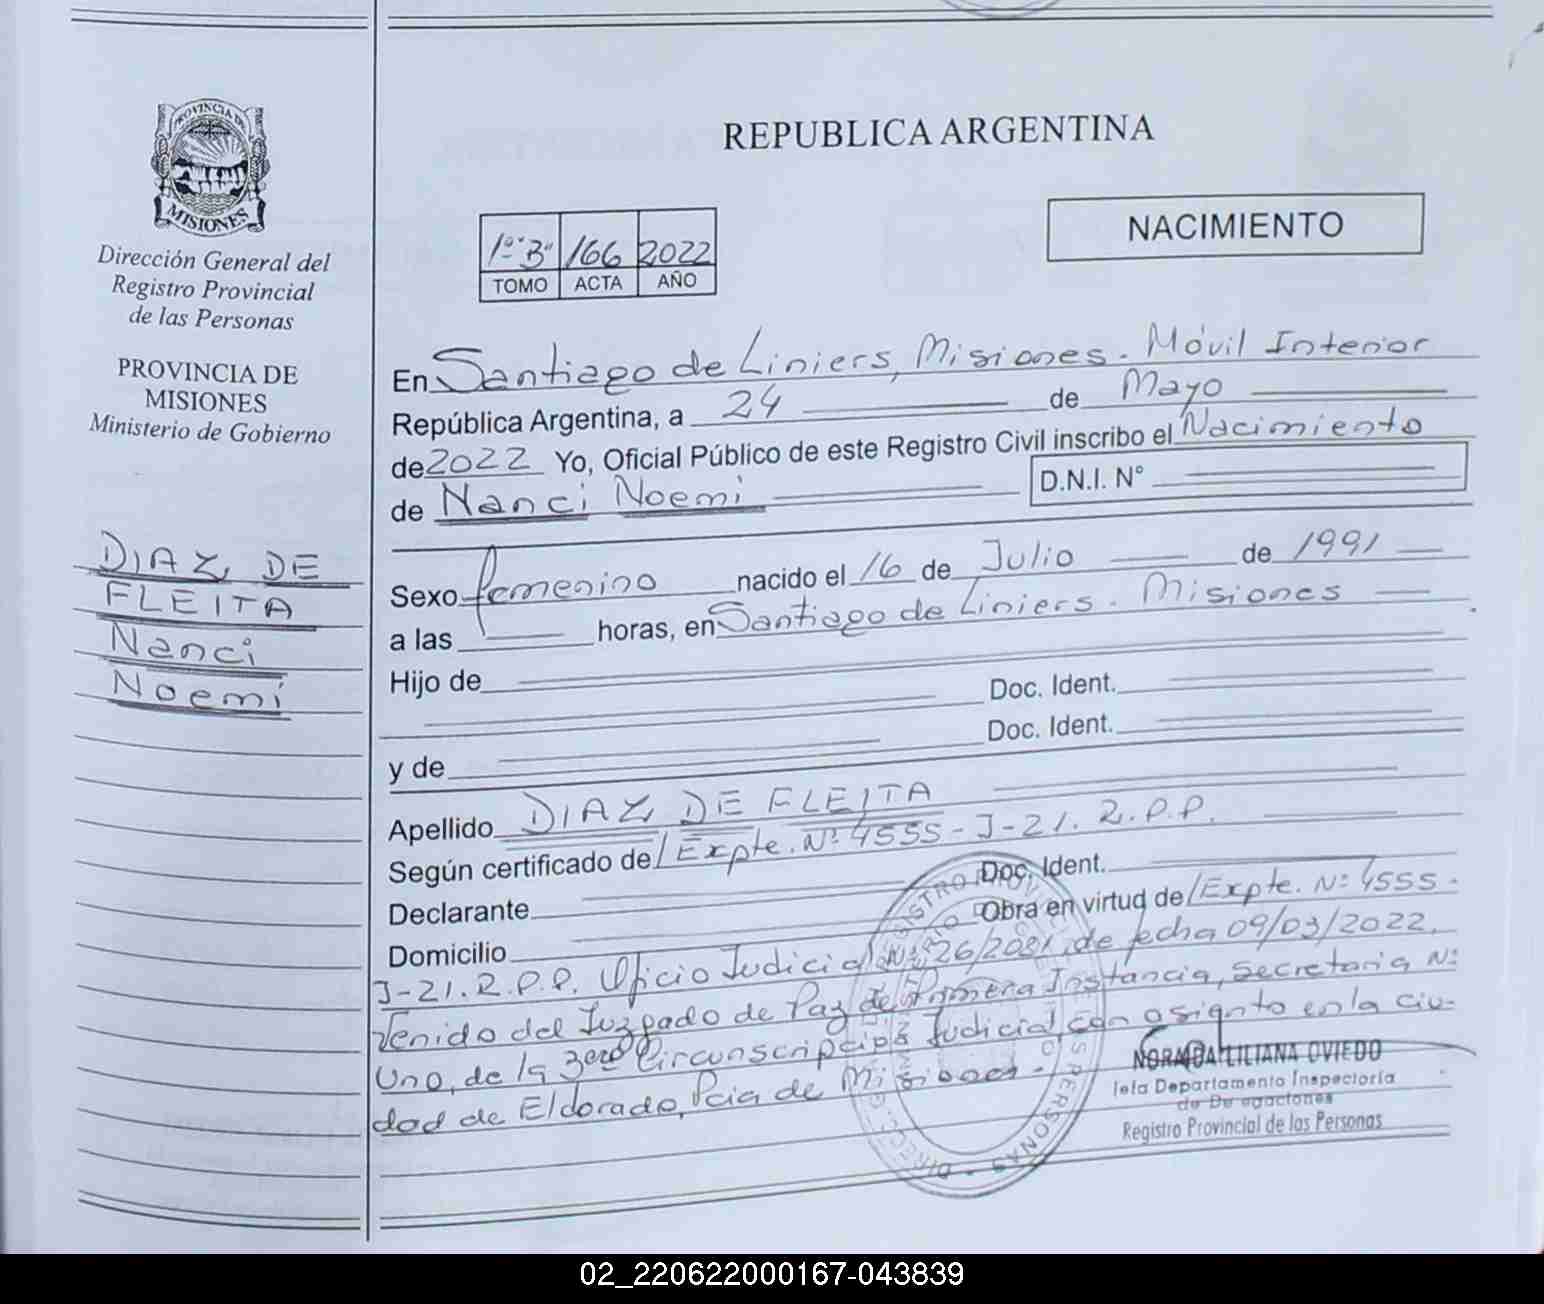 PROVINCIA DE
MISIONES
Dirección General del
Registro Provincial
de las Personas
PROVINCIA DE
MISIONES
Ministerio de Gobierno
DIAZ, DE
FLEITA
Nanci
Noemi
REPUBLICA ARGENTINA
NACIMIENTO
1º "B" 166 2022
TOMO ACTA AÑO
En Santiago de Liniers, Misiones. Móvil Interior
República Argentina, a 24 de Mayo
de 2022 Yo, Oficial Público de este Registro Civil inscribo el Nacimiento
de Nanci Noemi D.N.I. N°
Sexo femenino nacido el 16 de Julio de 1991
a las horas, en Santiago de Liniers. Misiones
Hijo de
Doc. Ident.
Doc. Ident.
y de
Apellido DIAZ, DE FLEITA
Según certificado de/ Expte. Nº 4555-J-21. R.P.P.
Doc. Ident.
Declarante
Obra en virtud de/Expte. Nº 4555-
Domicilio
J-21. R.P.P. Oficio Judicial Nº 26/2021, de fecha 09/03/2022,
Venido del Juzgado de Paz de Primera Instancia, Secretaria Nº
Uno, de la 3era Circunscripción Judicial con asiento en la ciu-
dad de Eldorado, Pcia de Misiones.-
NORMA LILIANA OVIEDO
Jefa Departamento Inspectoria
de Delegaciones
Registro Provincial de las Personas
02_220622000167-043839